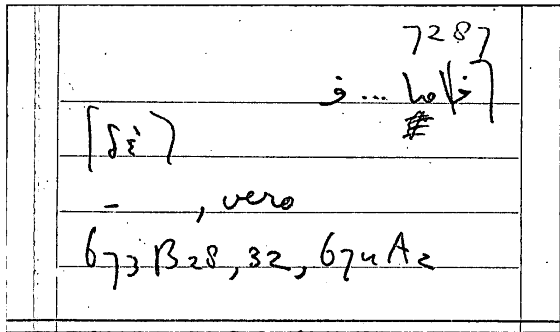 7287
فاما ... ف
[δὲ)
– , vero
673B28, 32, 674A2